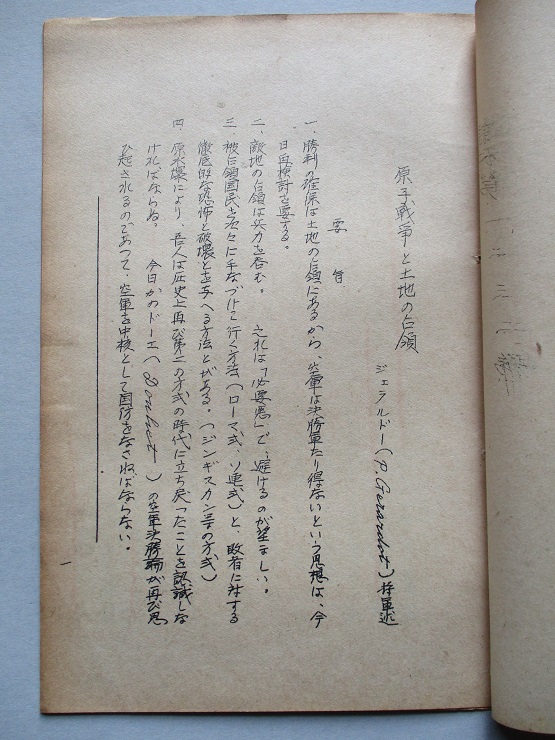 原子戦争と土地の占領
ジェラルドー(P. Gerardot)将軍述
要旨
一、勝利の確保は土地の占領にあるから、空軍は決勝軍たり得ないという思想は、今
日再検討を要する。
二、敵地の占領は兵力を呑む。之れは「必要悪」で、避けるのが望ましい。
三、被占領国民を次々に手なづけて行く方法(ローマ式、ソ連式)と、敗者に対する
徹底的な恐怖と破壊とを与へる方法とがある。(ジンギスカン等の方式)
四、原水爆により、吾人は歴史上再び第二の方式の時代に立ち戻ったことを認識しな
ければならぬ。今日かのドーエ(Douhet)の空軍決勝論が再び思
ひ起されるのであって、空軍を中核として国防をなさねばならない。
一